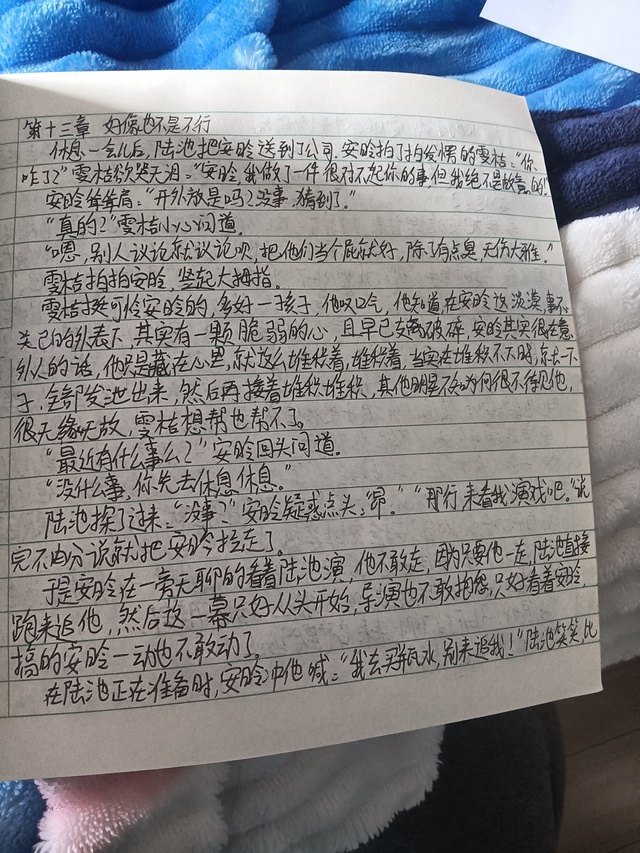 第十三章 好像也不是不行
休息一会儿后,陆池把安昤送到了公司,安昤拍了拍发愣的雯桔:“你
咋了?”雯桔欲哭无泪:“安昤,我做了一件很对不起你的事,但我绝不是故意的。”
安昤耸耸肩:“开外放是吗?没事,猜到了。”
“真的?”雯桔小心问道。
“嗯,别人议论就议论呗,把他们当个屁就好,除了有点臭,无伤大雅。”
雯桔拍拍安昤,竖起大拇指。
雯桔挺可怜安昤的,多好一孩子,他叹口气,他知道,在安昤这淡漠,事不
关己的外表下,其实有一颗脆弱的心,且早已支离破碎,安昤其实很在意
外人的话,他只是藏在心里,就这么堆积着,堆积着,当实在堆积不下时,就一下
子,全部发泄出来,然后再接着堆积堆积,其他明星不知为何很不待见他,
很无缘无故,雯桔想帮也帮不了。
“最近有什么事么?”安昤回头问道。
“没什么事,你先去休息休息。”
陆池探了过来:“没事?”安昤疑惑点头:“昂。”“那行,来看我演戏吧。”说
完不由分说就把安昤拉走了。
于是安昤在一旁无聊的看着陆池演,他不敢走,因为只要他一走,陆池直接
跑来追他,然后这一幕只好从头开始,导演也不敢抱怨,只好看着安昤,
搞的安昤一动也不敢动了。
在陆池正在准备时,安昤冲他喊:“我去买瓶水,别来追我!”陆池笑笑,比